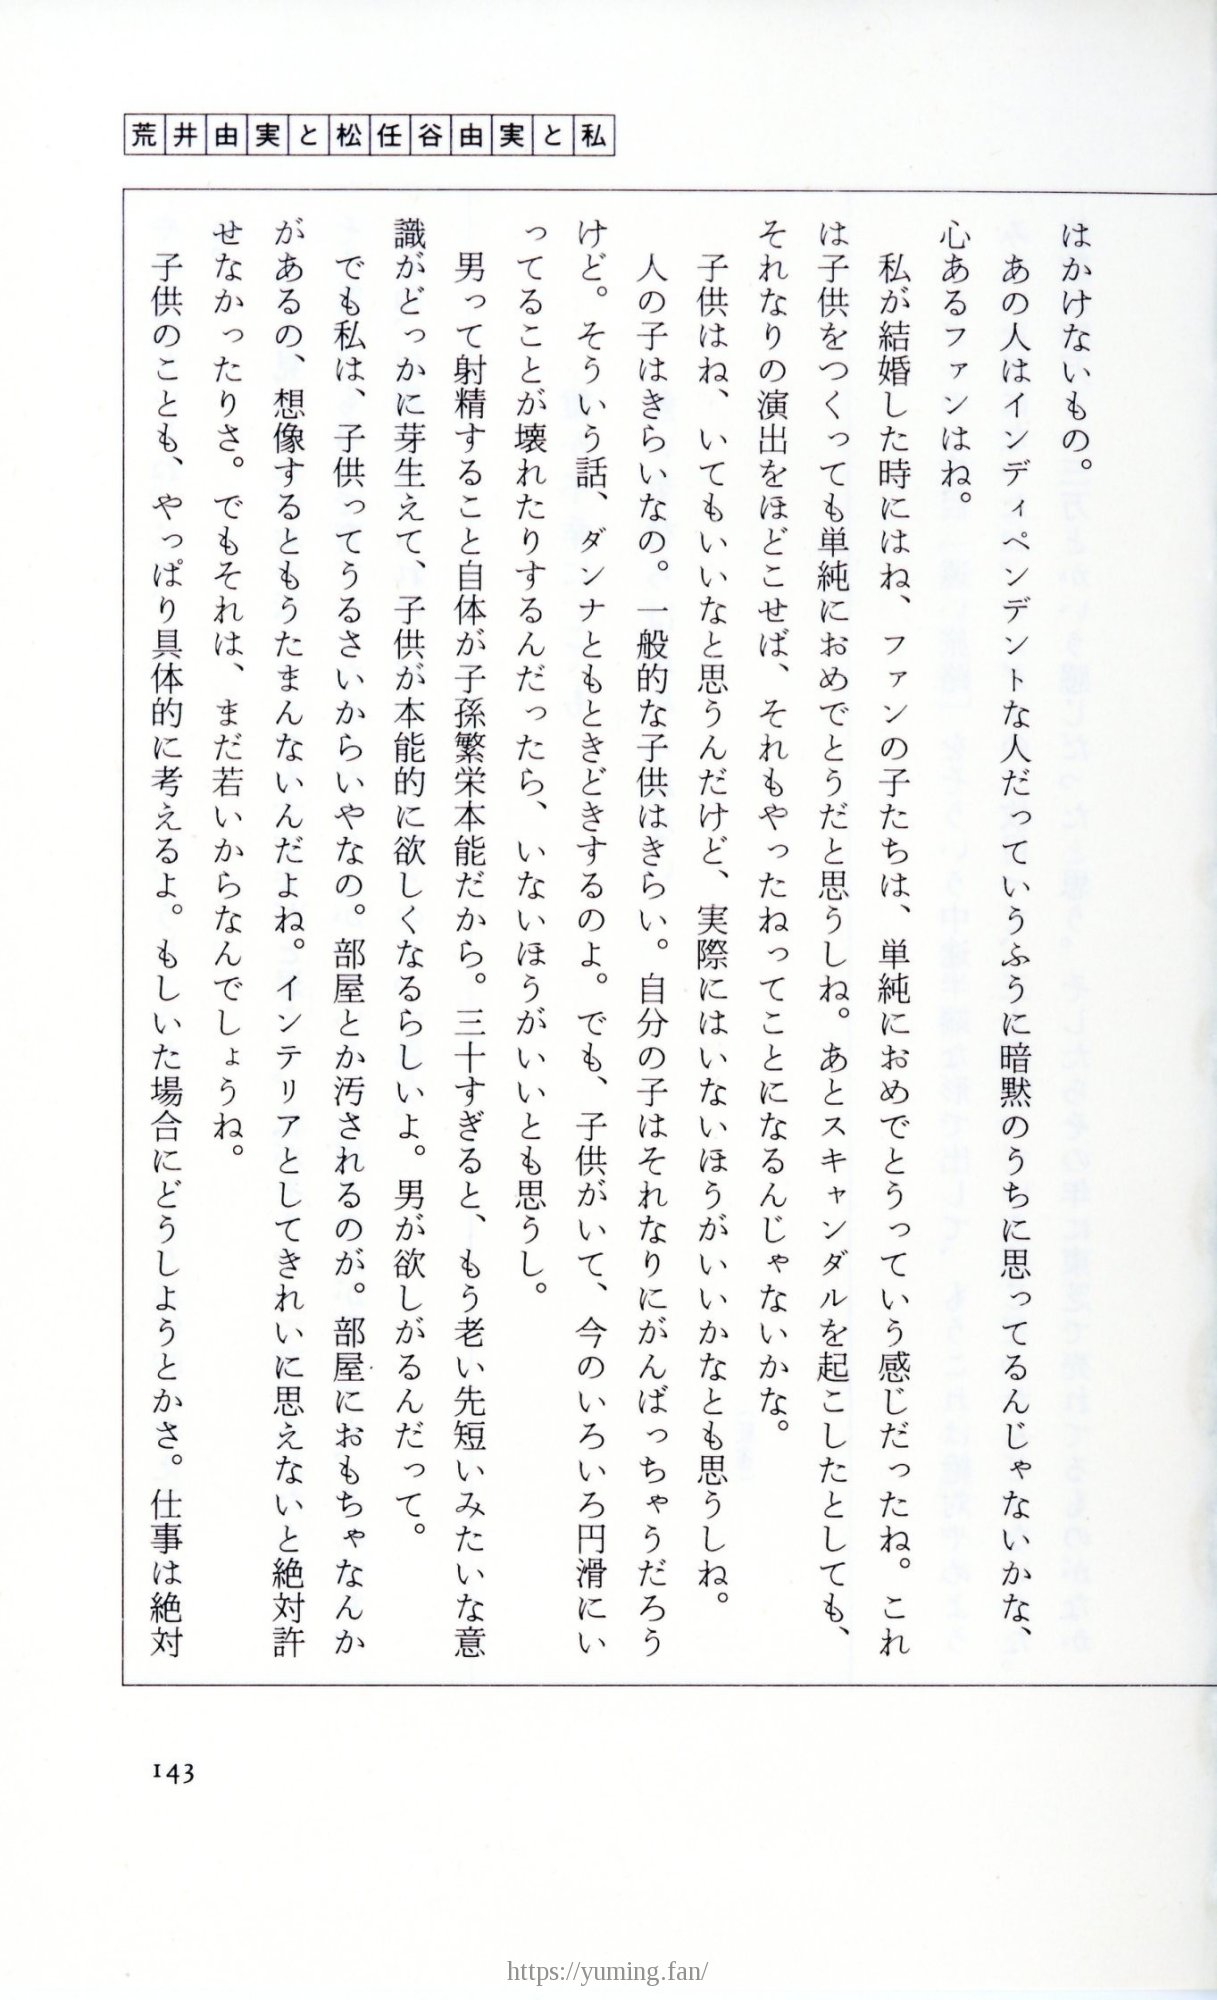 荒井由実と松任谷由実と私
はかけないもの。
あの人はインディペンデントな人だっていうふうに暗黙のうちに思ってるんじゃないかな、
心あるファンはね。
私が結婚した時にはね、ファンの子たちは、単純におめでとうっていう感じだったね。これ
は子供をつくっても単純におめでとうだと思うしね。あとスキャンダルを起こしたとしても、
それなりの演出をほどこせば、それもやったねってことになるんじゃないかな。
子供はね、いてもいいなと思うんだけど、実際にはいないほうがいいかなとも思うしね。
人の子はきらいなの。一般的な子供はきらい。自分の子はそれなりにがんばっちゃうだろう
けど。そういう話、ダンナともときどきするのよ。でも、子供がいて、今のいろいろ円滑にい
ってることが壊れたりするんだったら、いないほうがいいとも思うし。
男って射精すること自体が子孫繁栄本能だから。三十すぎると、もう老い先短いみたいな意
識がどっかに芽生えて、子供が本能的に欲しくなるらしいよ。男が欲しがるんだって。
でも私は、子供ってうるさいからいやなの。部屋とか汚されるのが。部屋におもちゃなんか
があるの、想像するともうたまんないんだよね。インテリアとしてきれいに思えないと絶対許
せなかったりさ。でもそれは、まだ若いからなんでしょうね。
子供のことも、やっぱり具体的に考えるよ。もしいた場合にどうしようとかさ。仕事は絶対
143
https://yuming.fan/